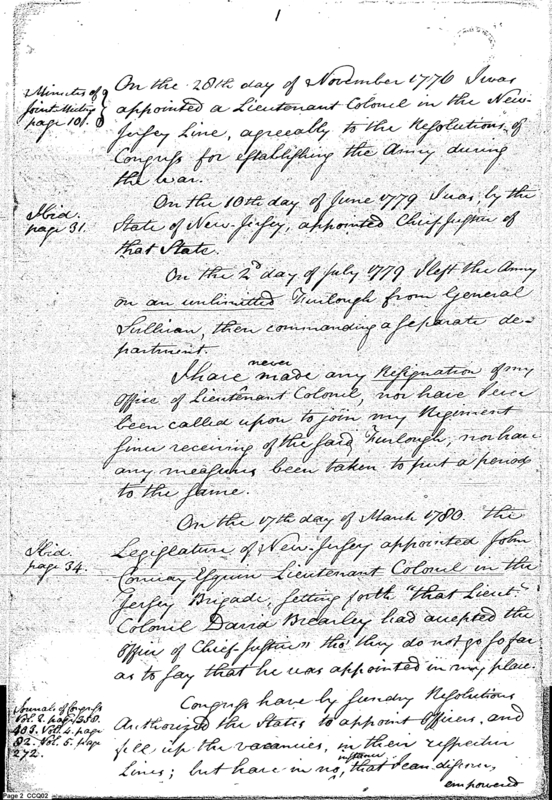 1
Minutes of
Joint-Meeting
page 10.
On the 28th day of November 1776 I was
appointed a Lieutenant Colonel in the New-
Jersey Line, agreeably to the Resolutions of
Congress for establishing the Army during
the war.
Ibid.
page 31.
On the 10th day of June 1779 I was, by the
State of New-Jersey, appointed Chief Justice of
that State.
On the 2d day of July 1779 I left the Army
on an unlimitted Furlough from General
Sullivan, then commanding a separate de-
partment.
I have never made any Resignation of my
Office of Lieutenant Colonel, nor have I ever
been called upon to join my Regiment
since receiving of the said Furlough, nor have
any measures been taken to put a period
to the same.
Ibid.
page 34.
On the 17th day of March 1780 the
Legislature of New-Jersey appointed John
Conway Esquire Lieutenant Colonel in the
Jersey Brigade, setting forth "that Lieut.
Colonel David Brearley had accepted the
Office of Chief-Justice" tho' they do not go so far
as to say that he was appointed in my place.
Journals of Congress
Vol. 2. page
403. Vol. 4. page
82. Vol. 5. page
272.
Congress have by sundry Resolutions
Authorized the States to appoint Officers, and
fill up the vacancies, in their respective
Lines; but have in no instance, that I can discover,
empowered
Page 2 CCQ02